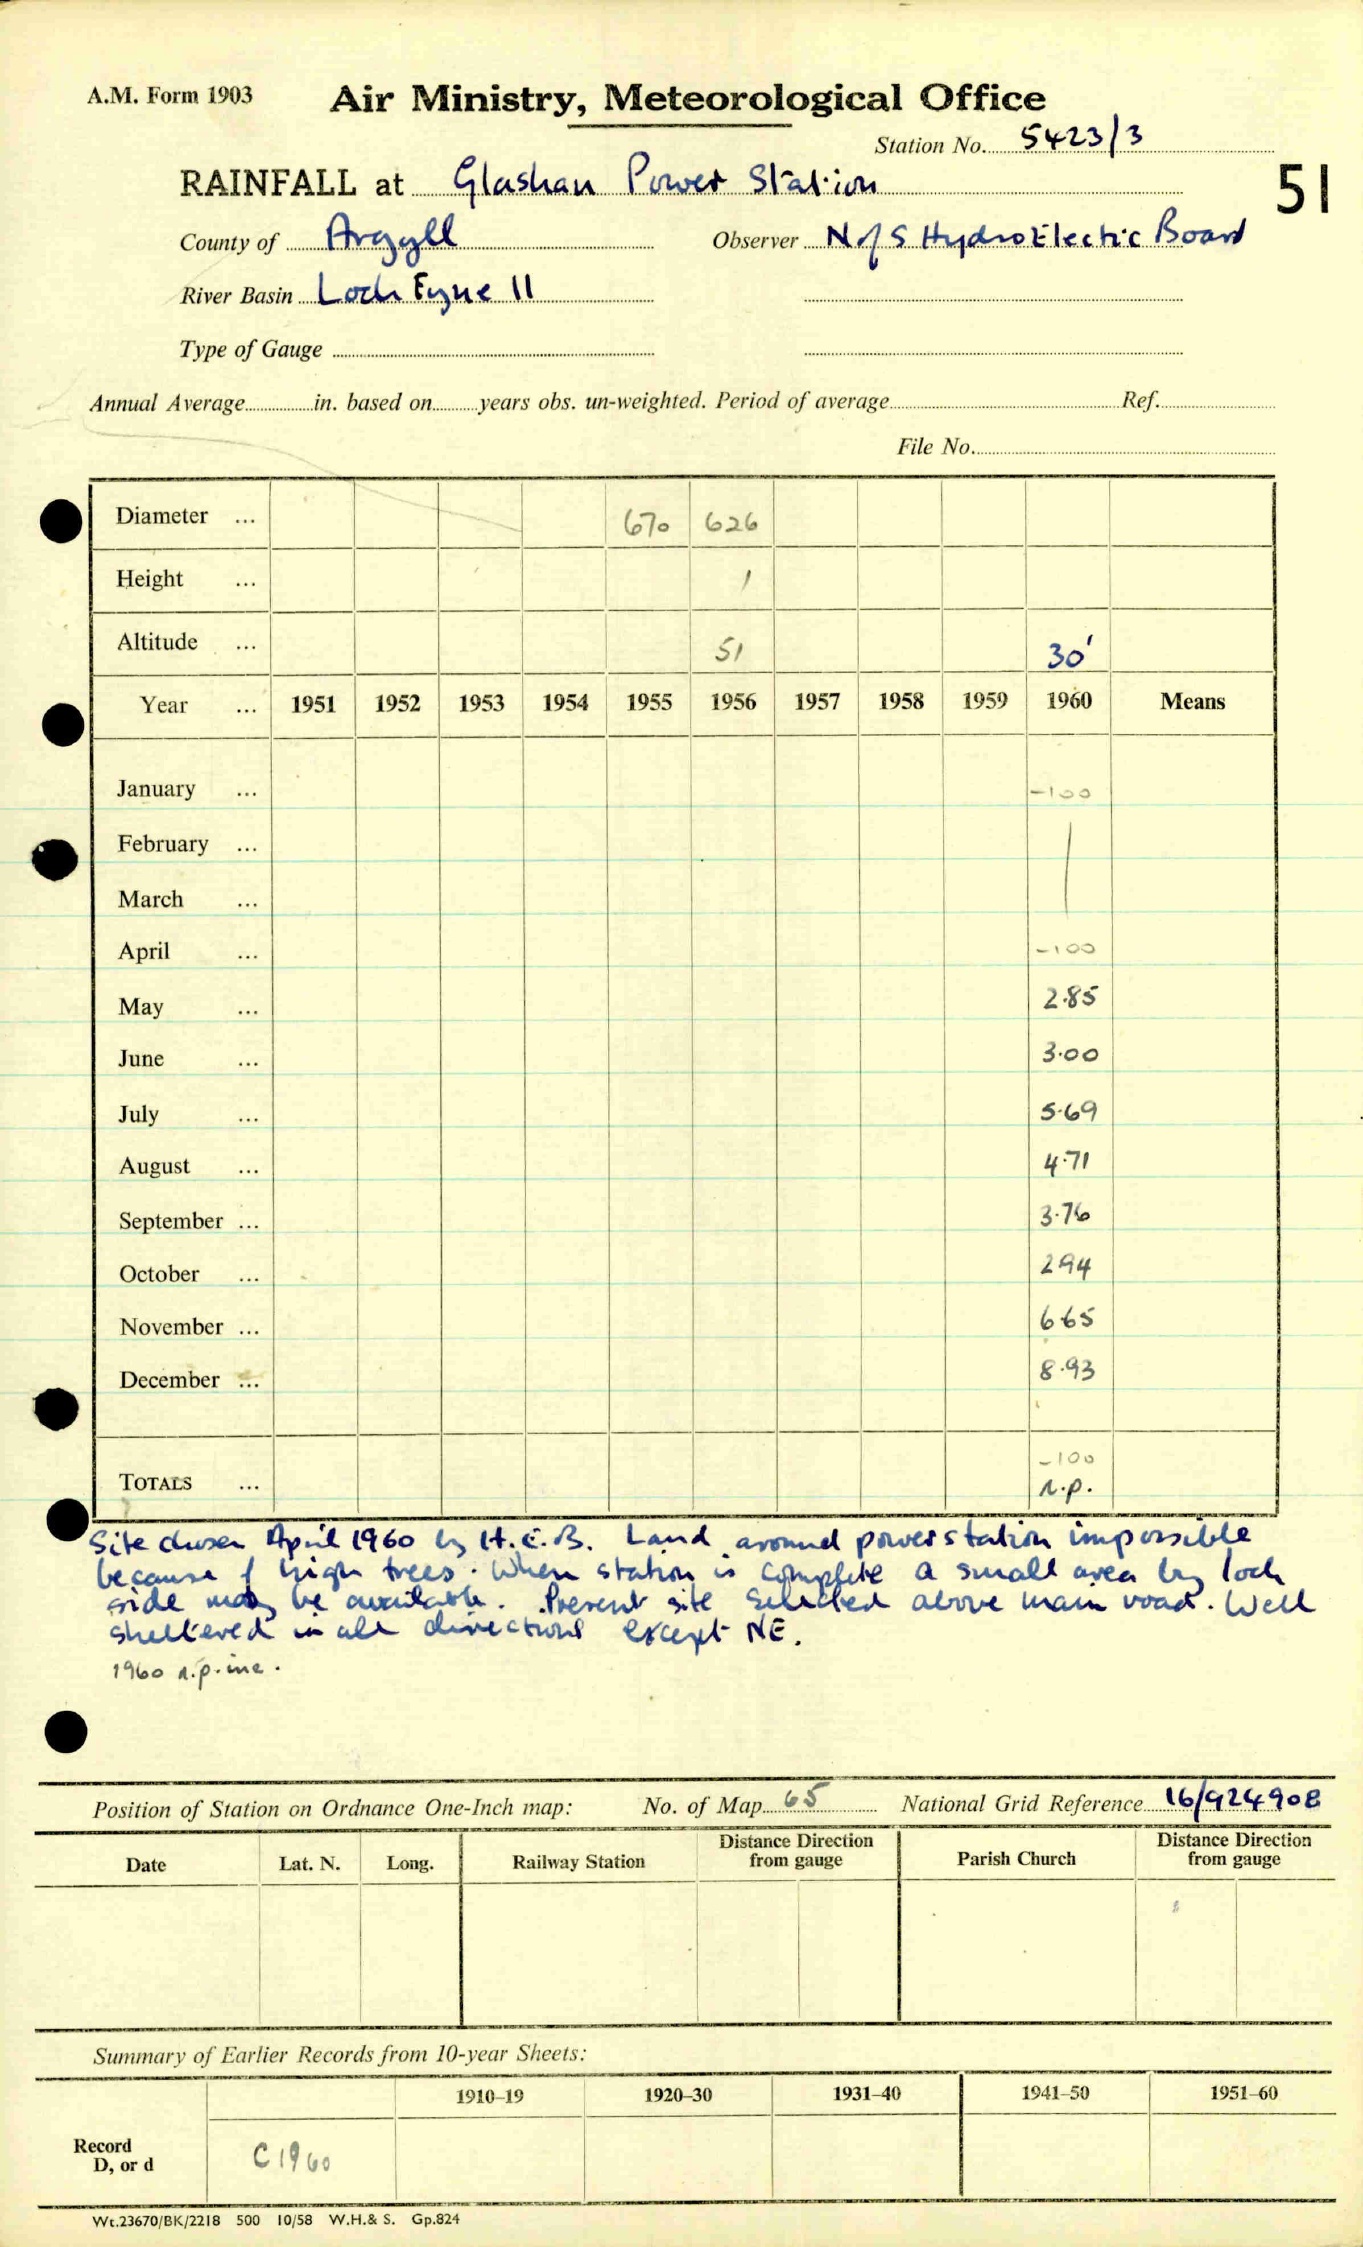 A.M. Form 1903 Air Ministry, Meteorological Office
Station No. 5423/3
RAINFALL at Glashan Power Station 51
County of Argyll Observer N of S Hydro Electric Board
River Basin Loch Fyne 11
Type of Gauge
Annual Average in. based on years obs. un-weighted. Period of average Ref.
File No.
Diameter ... 670 626
Height ... 1
Altitude ... 51 30'
Year ... 1951 1952 1953 1954 1955 1956 1957 1958 1959 1960 Means
January ... -100
February ...
March ...
April ... -100
May ... 2.85
June ... 3.00
July ... 5.69
August ... 4.71
September ... 3.76
October ... 2.94
November ... 6.65
December ... 8.93
-100
TOTALS ... n.p.
Site chosen April 1960 by H.E.B. Land around power station impossible
because of high trees. When station is complete a small area by loch
side may be available. Present site selected above main road. Well
sheltered in all directions except NE.
1960 n.p. inc.
Position of Station on Ordnance One-Inch map: No. of Map 65 National Grid Reference 16/924908
Date Lat. N. Long. Railway Station Distance Direction from gauge Parish Church Distance Direction from gauge
Summary of Earlier Records from 10-year Sheets:
1910–19 1920–30 1931–40 1941–50 1951–60
Record
D, or d C1960
Wt.23670/BK/2218 500 10/58 W.H.& S. Gp.824